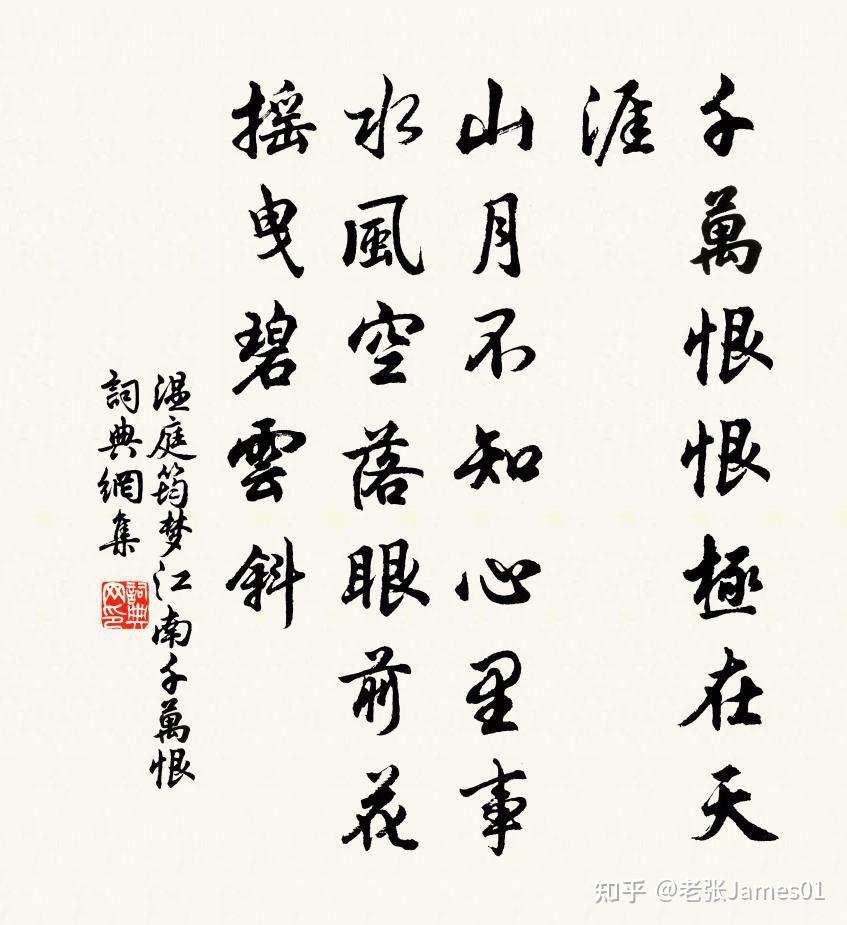 千萬恨恨極在天
涯
山月不知心里事
水風空落眼前花
摇曳碧雲斜
温庭筠梦江南千萬恨
詞典網集
詞典网印
知乎 @老张James01